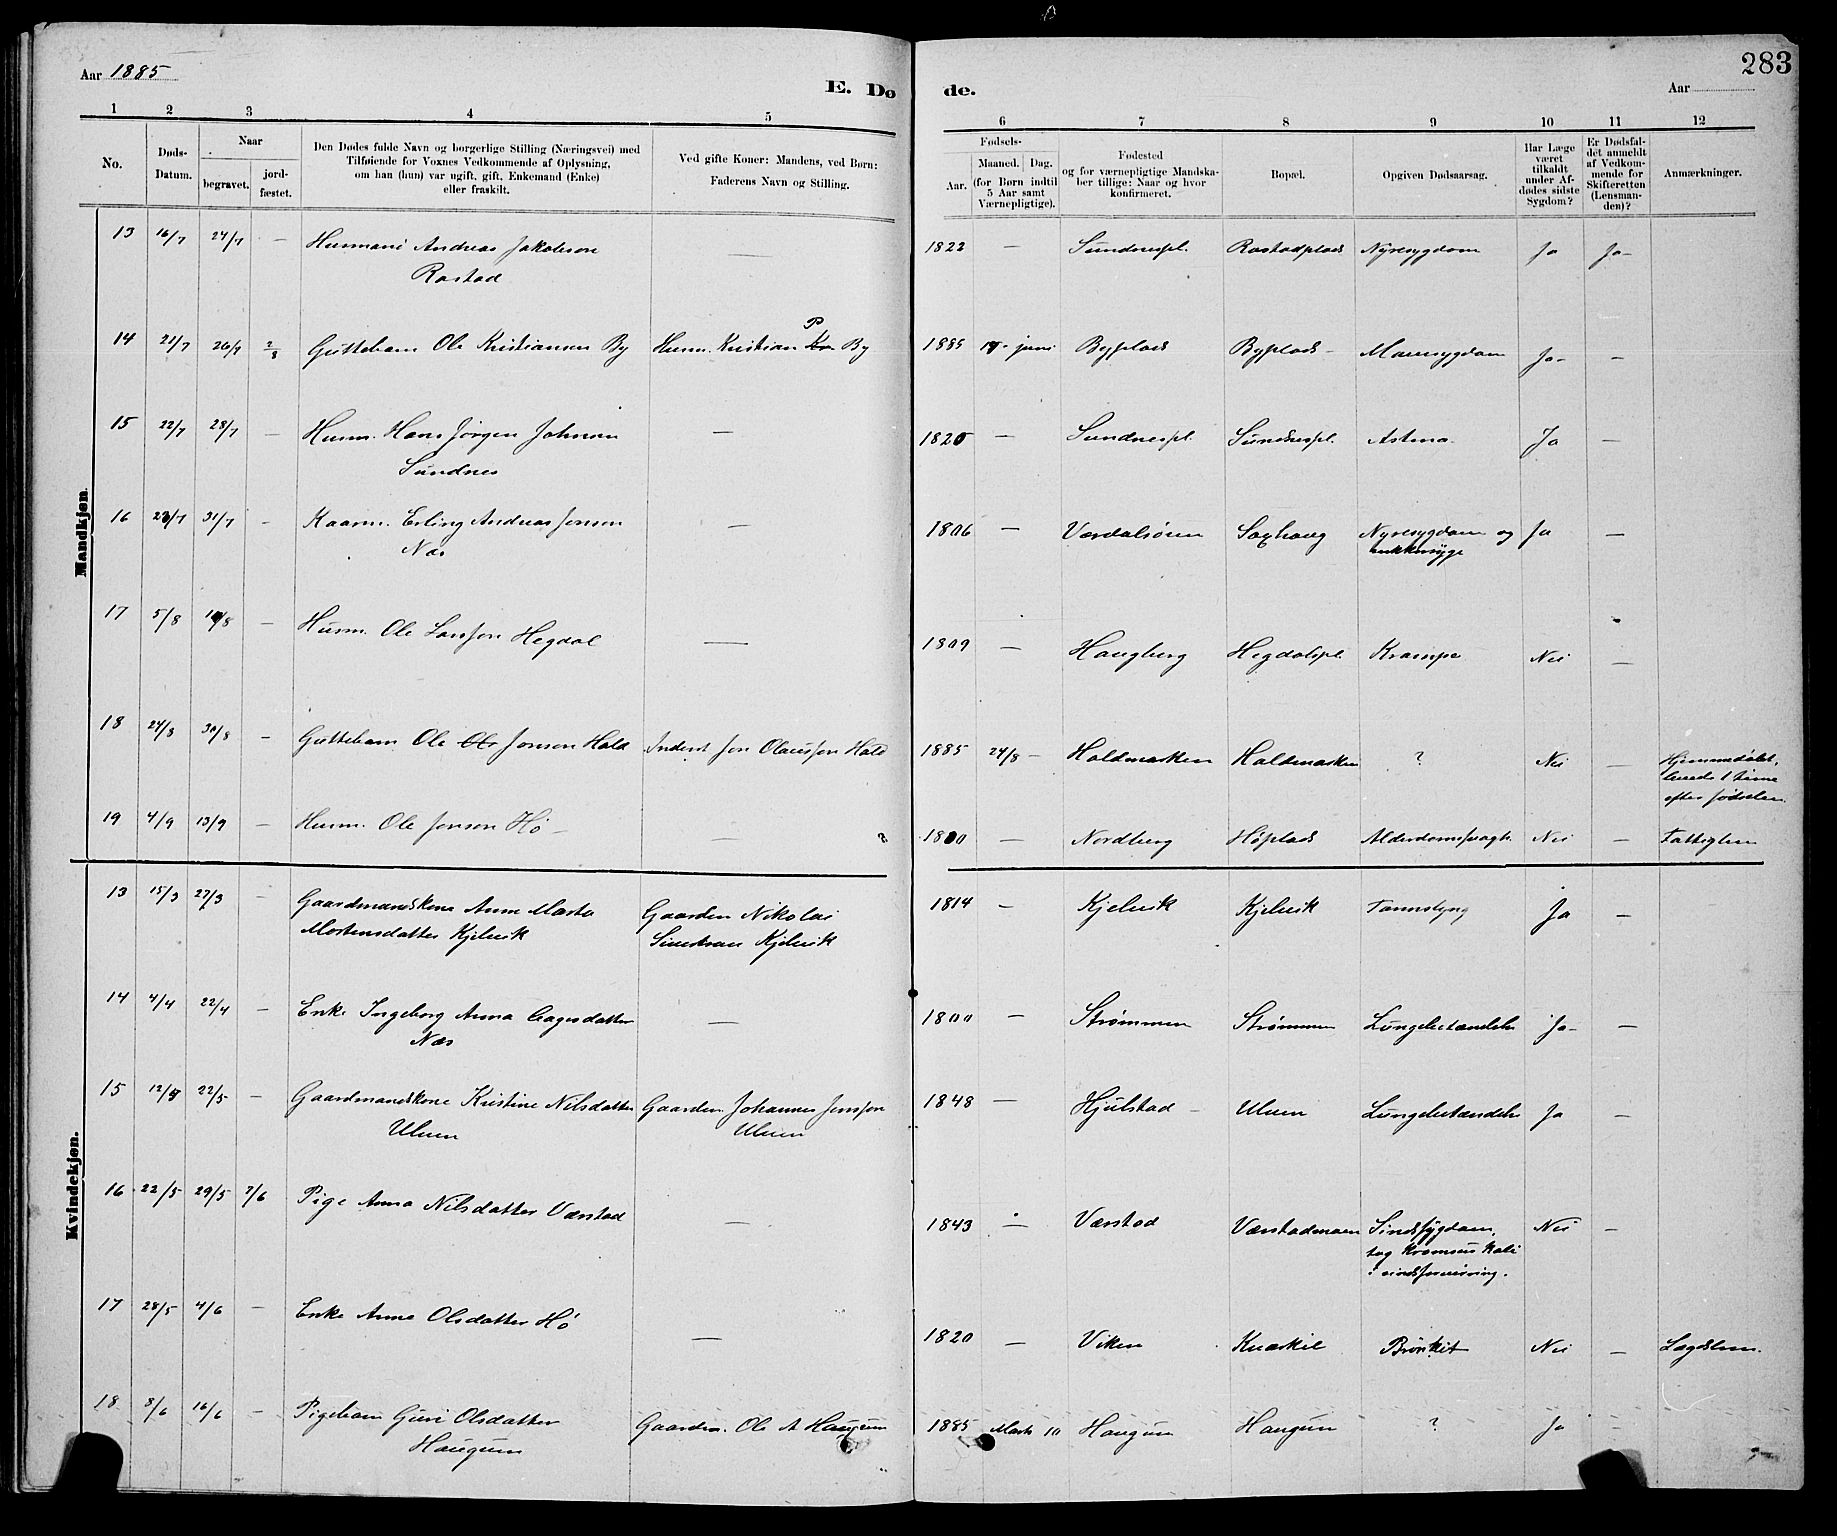 283
Aar 1885
E. Dø de.
Aar
1 2 3 4 5 6 7 8 9 10 11 12
No.
Døds-Datum.
Naar
begravet.
jordfæstet.
Den Dødes fulde Navn og borgerlige Stilling (Næringsvei) med
Tilføiende for Voxnes Vedkommende af Oplysning,
om han (hun) var ugift, gift, Enkemand (Enke)
eller fraskilt.
Ved gifte Koner: Mandens, ved Børn:
Faderens Navn og Stilling.
Fødsels-
Aar.
Maaned. Dag.
(for Børn indtil
5 Aar samt
Værnepligtige).
Fødested
og for værnepligtige Mandska-
ber tillige: Naar og hvor
konfirmeret.
Bopæl.
Opgiven Dødsaarsag.
Har Læge
været
tilkaldt
under Af-
dødes sidste
Sygdom?
Er Dødsfal-
det anmeldt
af Vedkom-
mende for
Skifteretten
(Lensman-
den)?
Anmærkninger.
Mandkjøn.
13 16/7 24/7 — Husmand Andreas Jakobson — 1822 — Sundnespl. Rostadplads Nyresygdom Ja Ja-
Rostad
14 21/7 26/7 2/8 Guttebarn Ole Kristiansen By Husm. Kristian P By 1885 17- juni Byplads Byplads - Mavesygdom Ja- —
15 22/7 28/7 — Husm. Hans Jørgen Johnsen — 1820 — Sundnespl. Sundnespl. Astma. Ja —
Sundnes
16 23/7 31/7 - Kaarm. Erling Andreas Jensen — 1806 — Værdalsøren Saxhaug Nyresygdom og Ja —
Næs
17 5/8 /8 — Husm. Ole Larsson Hegdal — 1809 — Haugberg Hegdalspl. Krampe Nei —
18 24/8 30/8 - Guttebarn Ole Jonson Hald Inderst Jon Olausson Hald 1885 24/8 - Haldmarken Haldmarken ? Nei — Hjemmedøbt,
levede 1 time
efter fødselen.
19 4/9 13/9 — Husm. Ole Jonson Hø - — ? 1800 — Nordberg Høplads Alderdomssvagh. Nei — Fattiglem
Kvindekjøn.
13 15/3 27/3 — Gaardmandskone Anne Marta Gaardm Nikolai 1814 — Kjelvik Kjelvik Ja —
Mortensdatter Kjelvik Sivertsen Kjelvik
14 4/4 22/4 — Enke Ingeborg Anna Aagesdatter — 1800 — Strømmen Strømmen Lungebetændelse Ja- —
Næs
15 12/ 22/5 - Gaardmandskone Kristine Nilsdatter Gaardm. Johannes Jonsson 1848 — Hjulstad - Ulven Lungebetændelse Ja —
Ulven Ulven
16 22/5 29/5 7/6 Pige Anna Nilsdatter Værstad — 1843 — Værstad Værstadmoen Sindssygdom, Nei —
tog Kromsur Kali
i sindsforvirring.
17 28/5 4/6 — Enke Anna Olsdatter Hø — 1820 — Viken Knaskil Bronkit Nei — Lægdslem.
18 8/6 16/6 — Pigebarn Guri Olsdatter Gaardm. Ole A Haugum 1885 Marts 10 Haugum Haugum ? Ja —
Haugum